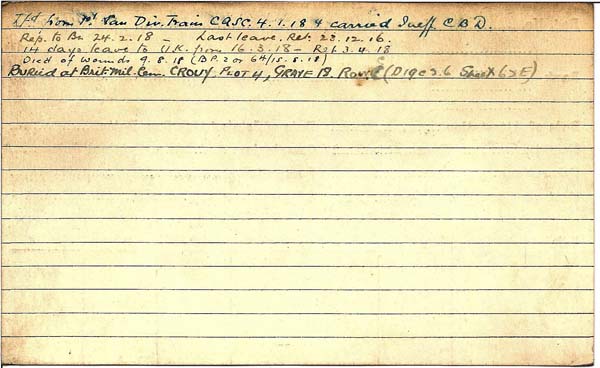 Tfd from 1st Can Div. Train C.A.S.C. 4.1.18 & carried Ineff C.B.D.
Rep. to Bn 24.2.18 - Last leave. Ret. 23.12.16.
14 days leave to U.K. from 16.3.18 - Ret. 3.4.18
Died of wounds 9.8.18 (B.P. 2 or 64/15.8.18)
Buried at Brit. Mil. Cem. CROUY PLOT 4, GRAVE 18 Row C (D19c2.6 Sheet 62E)